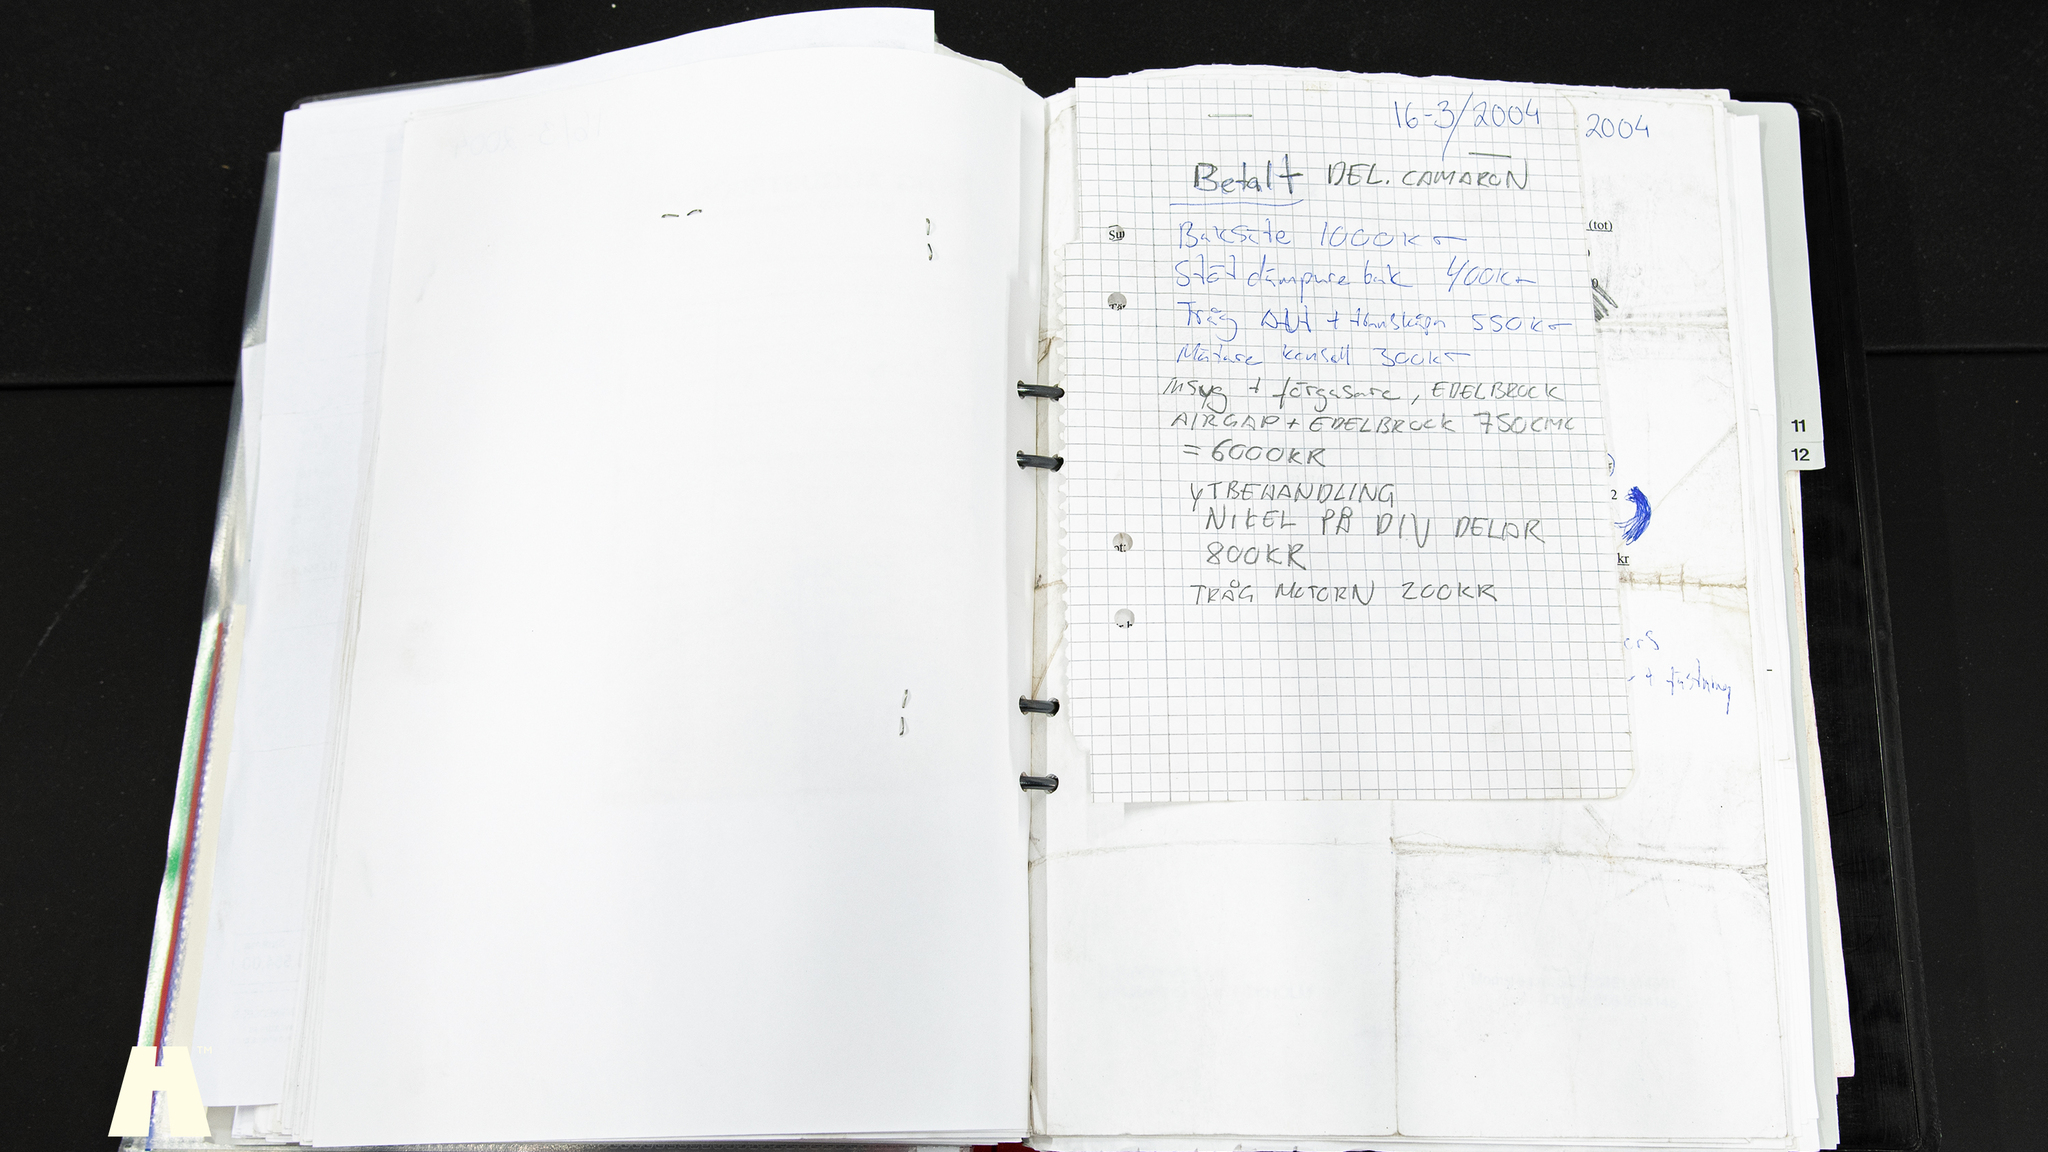 16-3/2004
2004
Betalt DEL. CAMARON
Baksäte 1000kr
Stötdämpare bak 400kr
Tråg AUT + 550kr
Mätare konsoll 300kr
insug + förgasare, EDELBROCK
AIRGAP + EDELBROCK 750
= 6000KR
YTBEHANDLING
NIKEL PÅ DIV DELAR
800KR
TRÅG MOTORN 200KR
(tot)
11
12
2
kr
+ fästning
H